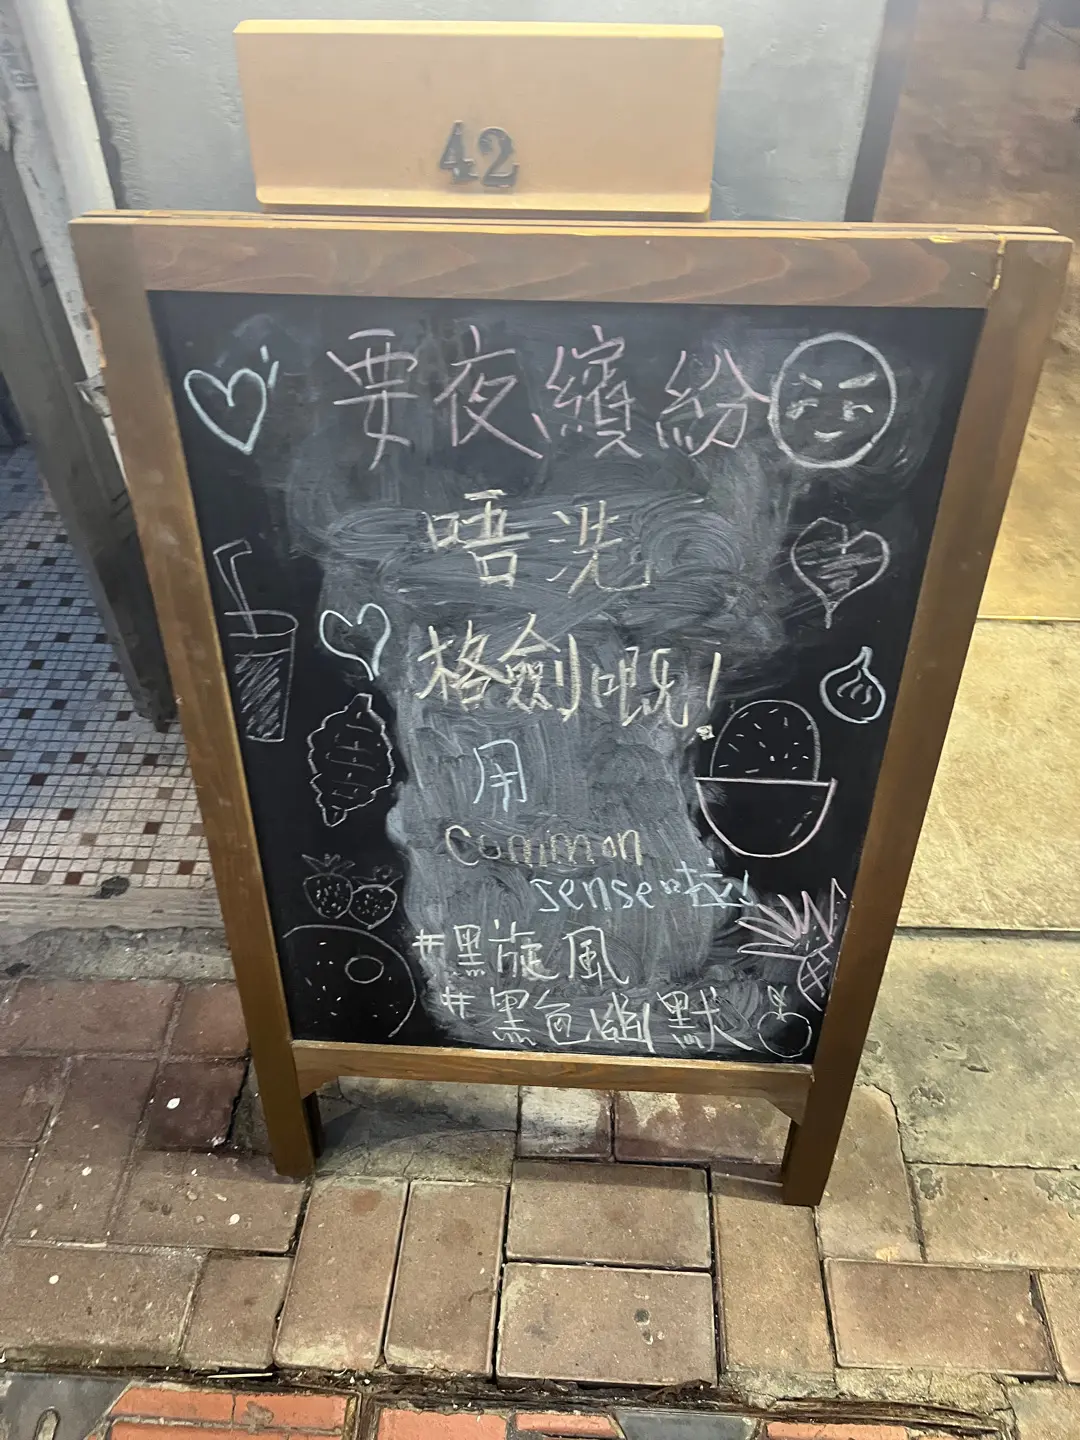 42
要夜繽紛
唔洗
格劍嘅!
用
common
sense啦!
#黑旋風
#黑色幽默